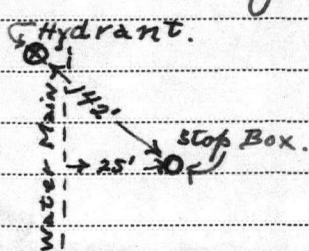 Hydrant.
142'
Stop Box.
25'
Water Main